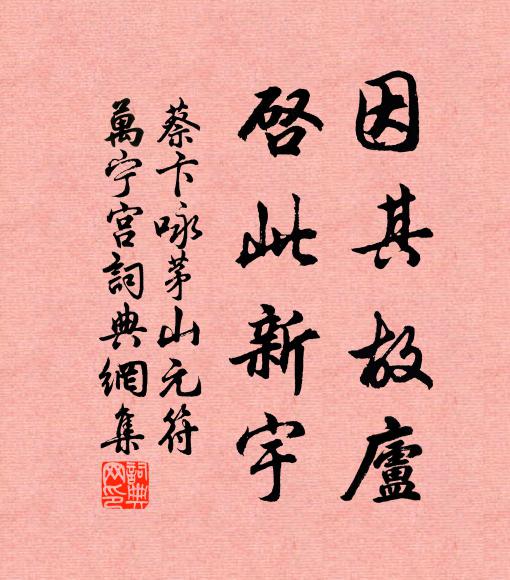 因其故廬
啓此新宇
蔡卞咏茅山元符
萬宁宫詞典網集
詞典网印